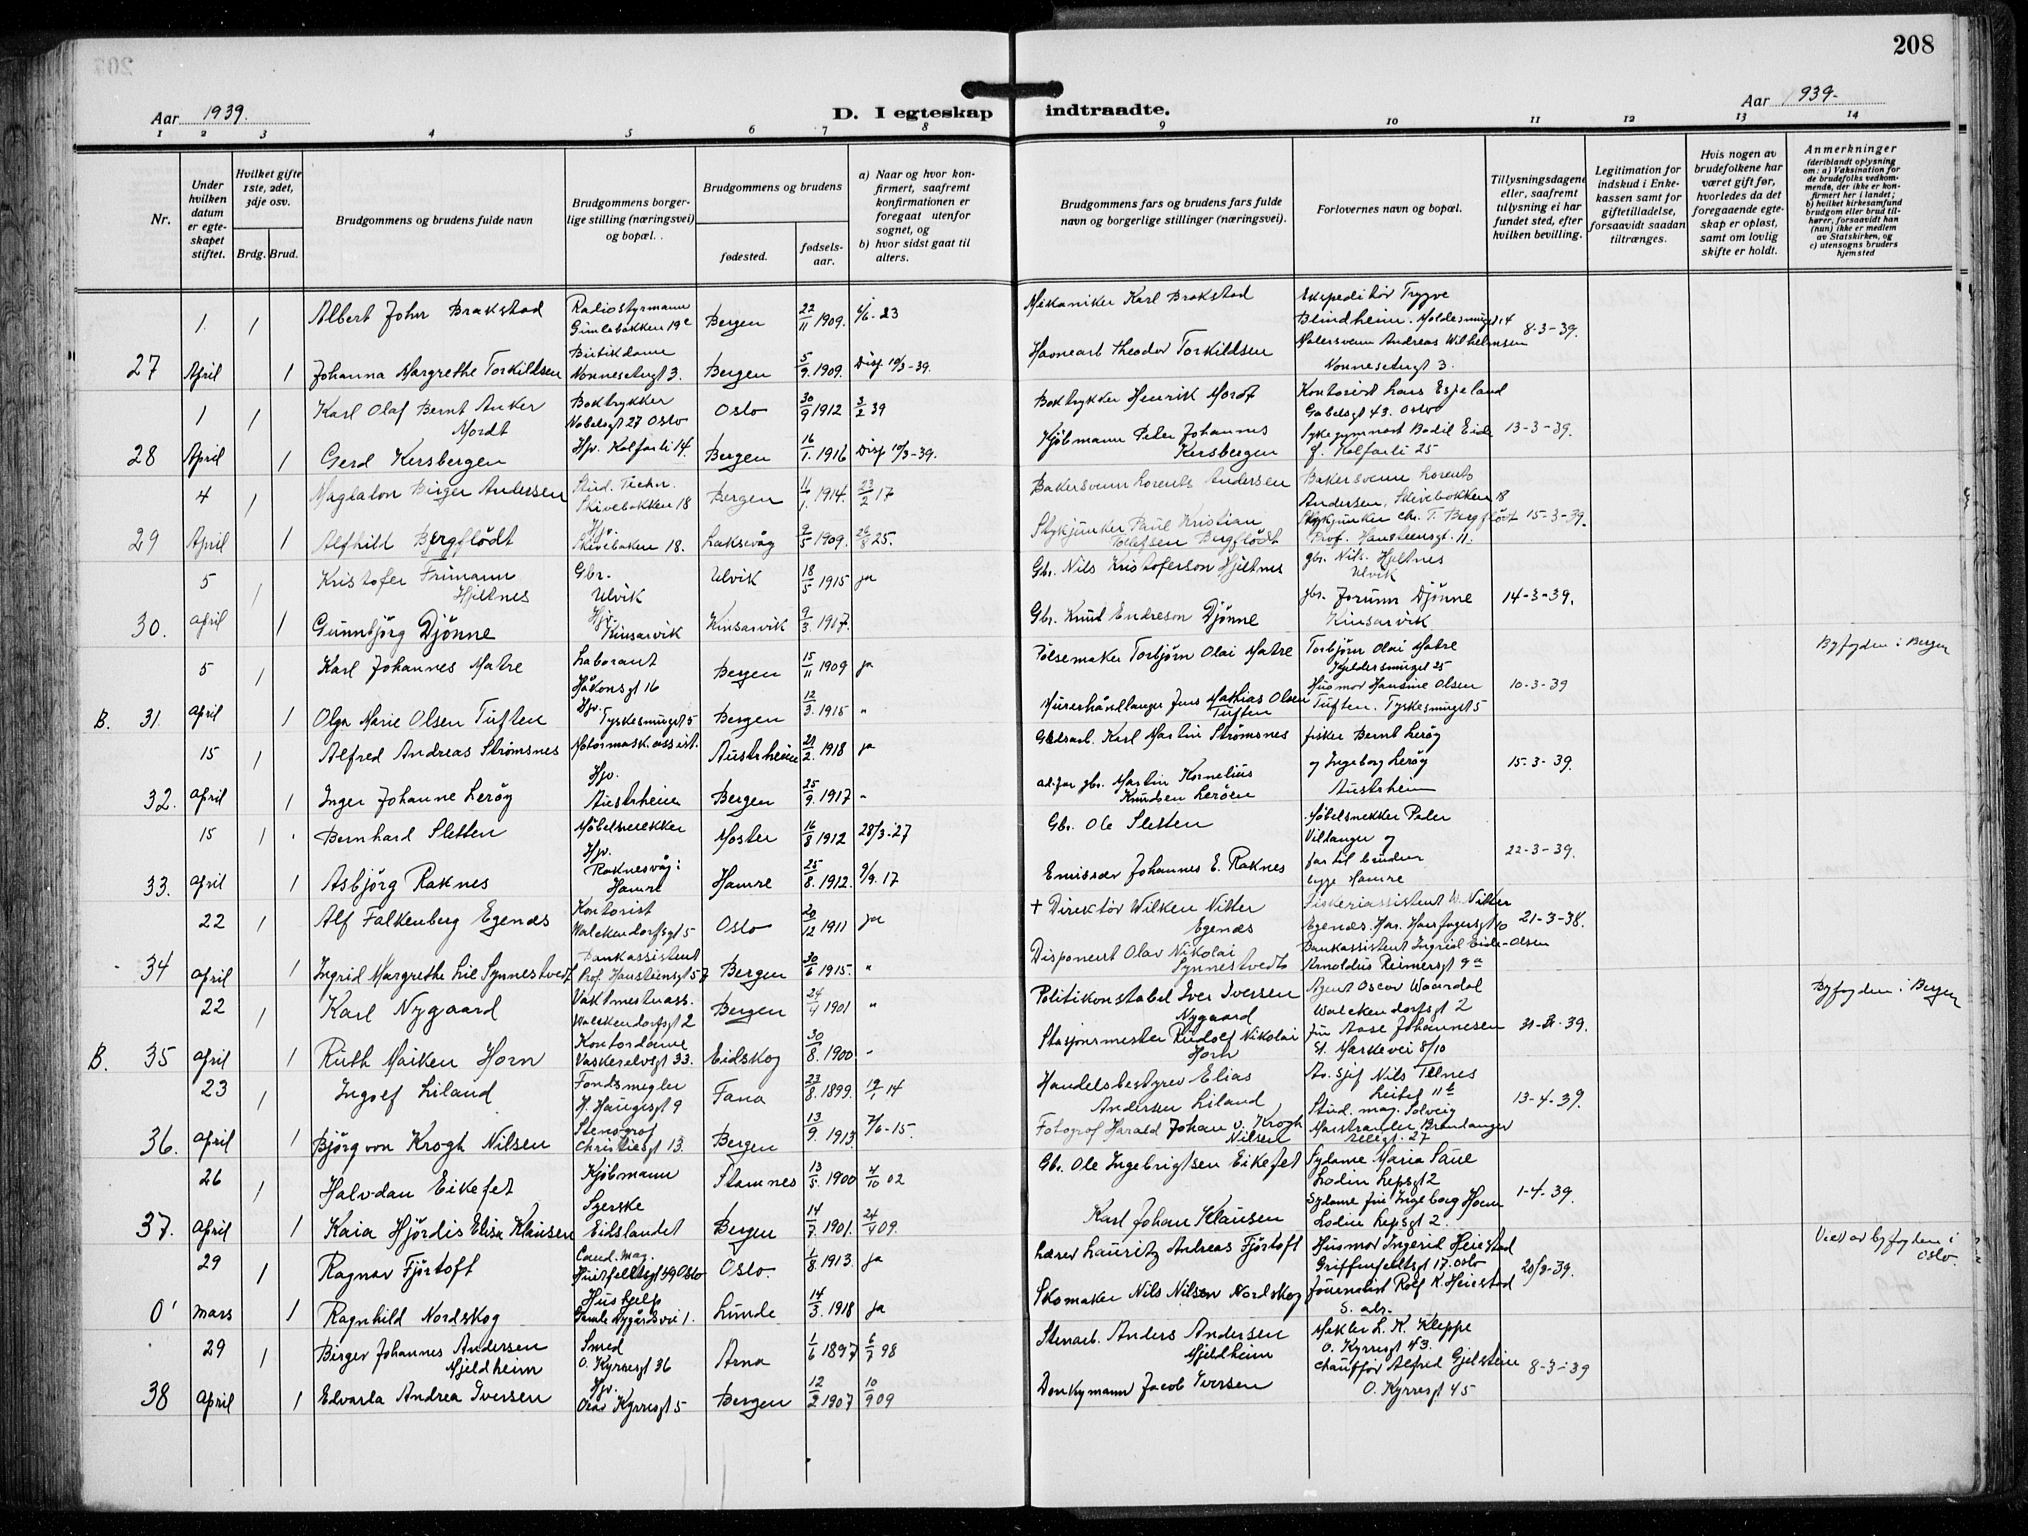 208
Aar 1939.
D. I egteskap indtraadte.
Aar 1939-
1 2 3 4 5 6 7 8 9 10 11 12 13 14
Nr.
Under hvilken datum er egteskapet stiftet.
Hvilket gifte 1ste, 2det, 3dje osv.
Brdg. Brud.
Brudgommens og brudens fulde navn
Brudgommens borgerlige stilling (næringsvei) og bopæl.
Brudgommens og brudens
fødested.
fødselsaar.
a) Naar og hvor konfirmert, saafremt konfirmationen er foregaat utenfor sognet, og
b) hvor sidst gaat til alters.
Brudgommens fars og brudens fars fulde navn og borgerlige stillinger (næringsvei).
Forlovernes navn og bopæl.
Tillysningsdagene eller, saafremt tillysning ei har fundet sted, efter hvilken bevilling.
Legitimation for indskud i Enkekassen samt for giftetilladelse, forsaavidt saadan tiltrænges.
Hvis nogen av brudefolkene har været gift før, hvorledes da det foregaaende egteskap er opløst, samt om lovlig skifte er holdt.
Anmerkninger
(deriblandt oplysning om: a) Vaksination for de brudefolks vedkommende, der ikke er konfirmert her i landet; b) hvilket kirkesamfund brudgom eller brud tilhører, forsaavidt han (hun) ikke er medlem av Statskirken, og c) utensogns bruders hjemsted
1. 1 Albert John Brakstad Radiostyrmann Gimlebakken 19c Bergen 22/11 1909. 6/6-23 Mekaniker Karl Brakstad Ekspeditør Trygve Blindheim. Moldesmuget 14
8-3-39.
27 April 1 Johanna Margrethe Torkildsen Butikdame Nonnesetergt 3. Bergen 5/9 1909. Disp 10/3-39. Havnearb Theodor Torkildsen Malersvenn Andreas Wilhelmsen Nonnesetergt 3.
1 1 Karl Olaf Bernt Anker Mordt Boktrykker Nobelsgt 27 Oslo Oslo 30/9 1912 3/2 39 Boktrykker Henrik Mordt Kontorist Lars Espeland Gabelsgt 43. Oslo
13-3-39.
28 April 1 Gerd Kersbergen Hjv. Kalfarli 14. Bergen 16/1. 1916 Disp 10/3-39. Kjøbmann Peter Johannes Kersbergen Sykegymnast Bodil Eide Kalfarli 25
4 1 Magdalon Birger Andersen Stud. Techn. Skivebakken 18 Bergen 11/1. 1914. 23/2 17 Bakersvenn Lorents Andersen Bakersvenn Lorents Andersen, Skivebakken 18
15-3-39.
29 April 1 Alfhild Bergflödt Hjv. Skivebakken 18. Laksevåg 9/5 1909. 26/8 25. Stykjunker Paul Kristian Tollefsen Bergflödt Stykjunker Chr. T. Bergflödt Prof. Hansteensgt. 11.
5 1 Kristofer Frimann Hjeltnes Gbr. Ulvik Ulvik 18/5 1915 ja Gbr. Nils Kristoferson Hjeltnes gbr. Nils Hjeltnes Ulvik
14-3-39.
30. April 1 Gunnbjörg Djönne Hjv. Kinsarvik Kinsarvik 9/3. 1917. Gbr. Knut Endreson Djönne gbr. Jorunn Djönne Kinsarvik
5 1 Karl Johannes Matre Laborant Håkonsgt 16 Bergen 15/11 1909 ja Pölsemaker Torbjörn Olai Matre Torbjörn Olai Matre Kjeldersmuget 25
10-3-39
Byfogden i Bergen
B. 31. April 1 Olga Marie Olsen Tuften Hjv. Tyskesmuget 5 Bergen 12/3. 1915 " Murerhåndlanger Jens Mathias Olsen Tuften Husmor Hansine Olsen Tuften. Tyskesmuget 5
15 1 Alfred Andreas Strømsnes Motormask.assist. Austrheim 21/2. 1918 ja Karl Martin Strømsnes fisker Bernt Lerøy
15-3-39.
32. April 1 Inger Johanne Lerøy Hjv. Austrheim Bergen 25/9. 1917 " ad.far gbr. Martin Kornelius Knudsen Lerøen og Ingeborg Lerøy Austrheim
15 1 Bernhard Sletten Möbelsnekker Moster 16/8 1912 28/3-27 Gbr. Ole Sletten Möbelsnekker Peder Viltanger og
22-3-39.
33. April 1 Asbjörg Raknes Hjv. Raknesvåg i Hamre Hamre 25/8. 1912. 9/9. 17 Emissær Johannes E. Raknes far til bruden Hamre
22 1 Alf Falkenberg Egenæs Kontorist Walckendorfsgt 5 Oslo 20/12 1911 ja + Direktör Wilken Nitter Egenæs Fiskeriassistent W. Nitter Egenæs. Har. Haarfagersgt
21-3-38.
34 April 1 Ingrid Margrethe Lie Synnestvedt Bankassistent Prof. Hansteensgt 57 Bergen 30/6 1915. " Disponent Olav Nikolai Synnestvedt Bankassistent Ingrid Eide-Olsen Arnoldus Reimersgt 9a
22 1 Karl Nygaard Vaktmesterass. Walckendorfsgt 2 Bergen 24/4 1901 " Politikonstabel Iver Iversen Nygaard Agent Oscar Waardal Walckendorfsgt 2
Byfogden i Bergen
B. 35 April 1 Ruth Maiken Horn Kontordame Vaskerelvgt 33. Eidskog 30/8. 1900 " Stasjonsmester Rudolf Nikolai Horn Frk Aase Johannesen St. Markevei 8/10
23 1 Ingolf Liland Fondsmegler H. Haugesgt 9 Fana 23/8. 1899. 19/4 14 Handelsbestyrer Elias Andersen Liland Av. sjef Nils Telnes Leitet 11b
13-4-39.
36. April 1 Bjørg von Krogh Nilsen Stenograf Christiesgt 13. Bergen 13/9. 1913 7/6-15. Fotograf Harald Johan v. Krogh Nilsen Stud. mag. Solveig Marstrander Brandanger 27
26 1 Halvdan Eikefet Kjøbmann Stamnes 13/5 1900 4/10 02 Gbr. Ole Ingebrigtsen Eikefet Sydame Maria Saue Lodin Lepsgt 2
1-4-39.
37. April 1 Kaia Hjördis Elisa Klausen Syerske Eidslandet Bergen 14/7 1901. 24/4 09. Karl Johan Klausen Sydame frk Ingeborg Horn Lodin Lepsgt 2.
29 1 Ragnar Fjörtoft Cand. mag. Huitfeldtsgt 49 Oslo Oslo. 1/8. 1913. ja Lærer Lauritz Andreas Fjörtoft Husmor Ingerid Heiestad Griffenfeldtsgt 17. Oslo
20/3-39.
Viet av byfogden i Oslo.
0' mars 1 Ragnhild Nordskog Hushjelp Gamle Nygårdsvei 1. Lunde 14/3. 1918 ja Skomaker Nils Nilsen Nordskog Journalist Rolf K. Heiestad S. adr.
29 1 Birger Johannes Andersen Mjeldheim Smed O. Kyrresgt 36 Arna 1/6 1897 6/7 98 Stenarb. Anders Andersen Mjeldheim Mekler L. K. Kleppe O. Kyrresgt 43.
8-3-39
38 April 1 Edvarda Andrea Iversen Hjv. Olav Kyrresgt 5 Bergen 12/2 1907 10/9 09 Donkymann Jacob Iversen Chauffør Alfred Gjelstein O. Kyrresgt 45